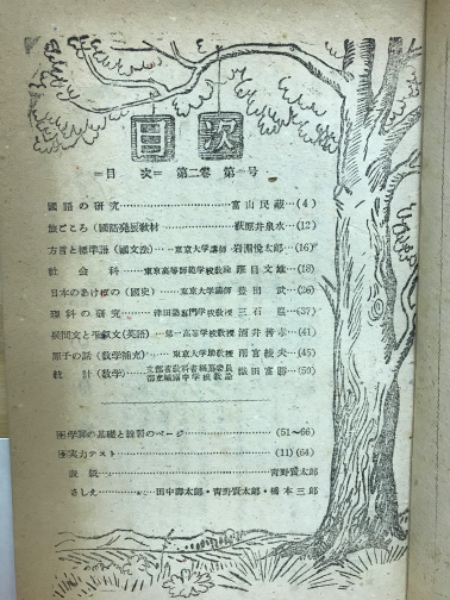 目次
=目 次= 第二巻 第一号
國語の研究……………富山民蔵…(4)
旅ごころ(國語発展教材)……………萩原井泉水…(12)
方言と標準語(國文法)…東京大学講師 岩淵悦太郎…(16)
社会科…東京高等師範学校教諭 文雄…(18)
日本のあけぼの(國史)……東京大学講師 豊田武…(26)
理科の研究……津田塾専門学校教授 三石巌…(37)
疑問文と平叙文(英語)…第一高等学校教授 酒井善孝…(41)
原子の話(数学補充)……東京大学助教授 雨宮綾夫…(45)
統計(数学)……文部省教科書編纂委員 富勝…(59)
学習の基礎と練習のページ……………(51〜66)
実力テスト……………(11)(64)
表紙……………青野賢太郎
さしえ……………田中壽太郎・青野賢太郎・橋本三郎